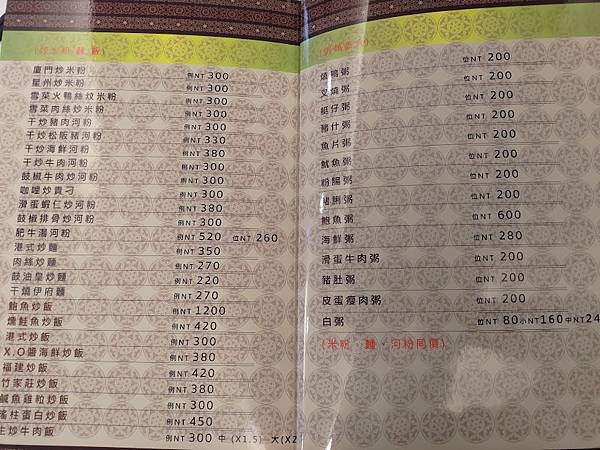 廈門炒米粉 例NT 300
星州炒米粉 例NT 300
雪菜火鴨絲炆米粉 例NT 300
雪菜肉絲炒米粉 例NT 300
干炒豬肉河粉 例NT 300
干炒松阪豬河粉 例NT 330
干炒海鮮河粉 例NT 380
干炒牛肉河粉 例NT 300
鼓椒牛肉炒河粉 例NT 300
咖哩炒貴刁 例NT 300
滑蛋蝦仁炒河粉 例NT 380
鼓椒排骨炒河粉 例NT 300
肥牛湯河粉 例NT 520 位NT 260
港式炒麵 例NT 350
肉絲炒麵 例NT 270
鼓油皇炒麵 例NT 220
干燒伊府麵 例NT 270
鮑魚炒飯 例NT 1200
燻鮭魚炒飯 例NT 420
港式炒飯 例NT 300
X.O醬海鮮炒飯 例NT 380
福建炒飯 例NT 420
竹家莊炒飯 例NT 380
鹹魚雞粒炒飯 例NT 300
瑤柱蛋白炒飯 例NT 450
生炒牛肉飯 例NT 300 中 (X1.5) 大(X2
燒鴨粥 位NT 200
叉燒粥 位NT 200
艇仔粥 位NT 200
豬什粥 位NT 200
魚片粥 位NT 200
魷魚粥 位NT 200
粉腸粥 位NT 200
豬腒粥 位NT 200
鮑魚粥 位NT 600
海鮮粥 位NT 280
滑蛋牛肉粥 位NT 200
豬肚粥 位NT 200
皮蛋瘦肉粥 位NT 200
白粥 位NT 80 小NT 160 中NT 24
(米粉、麵、河粉同價)